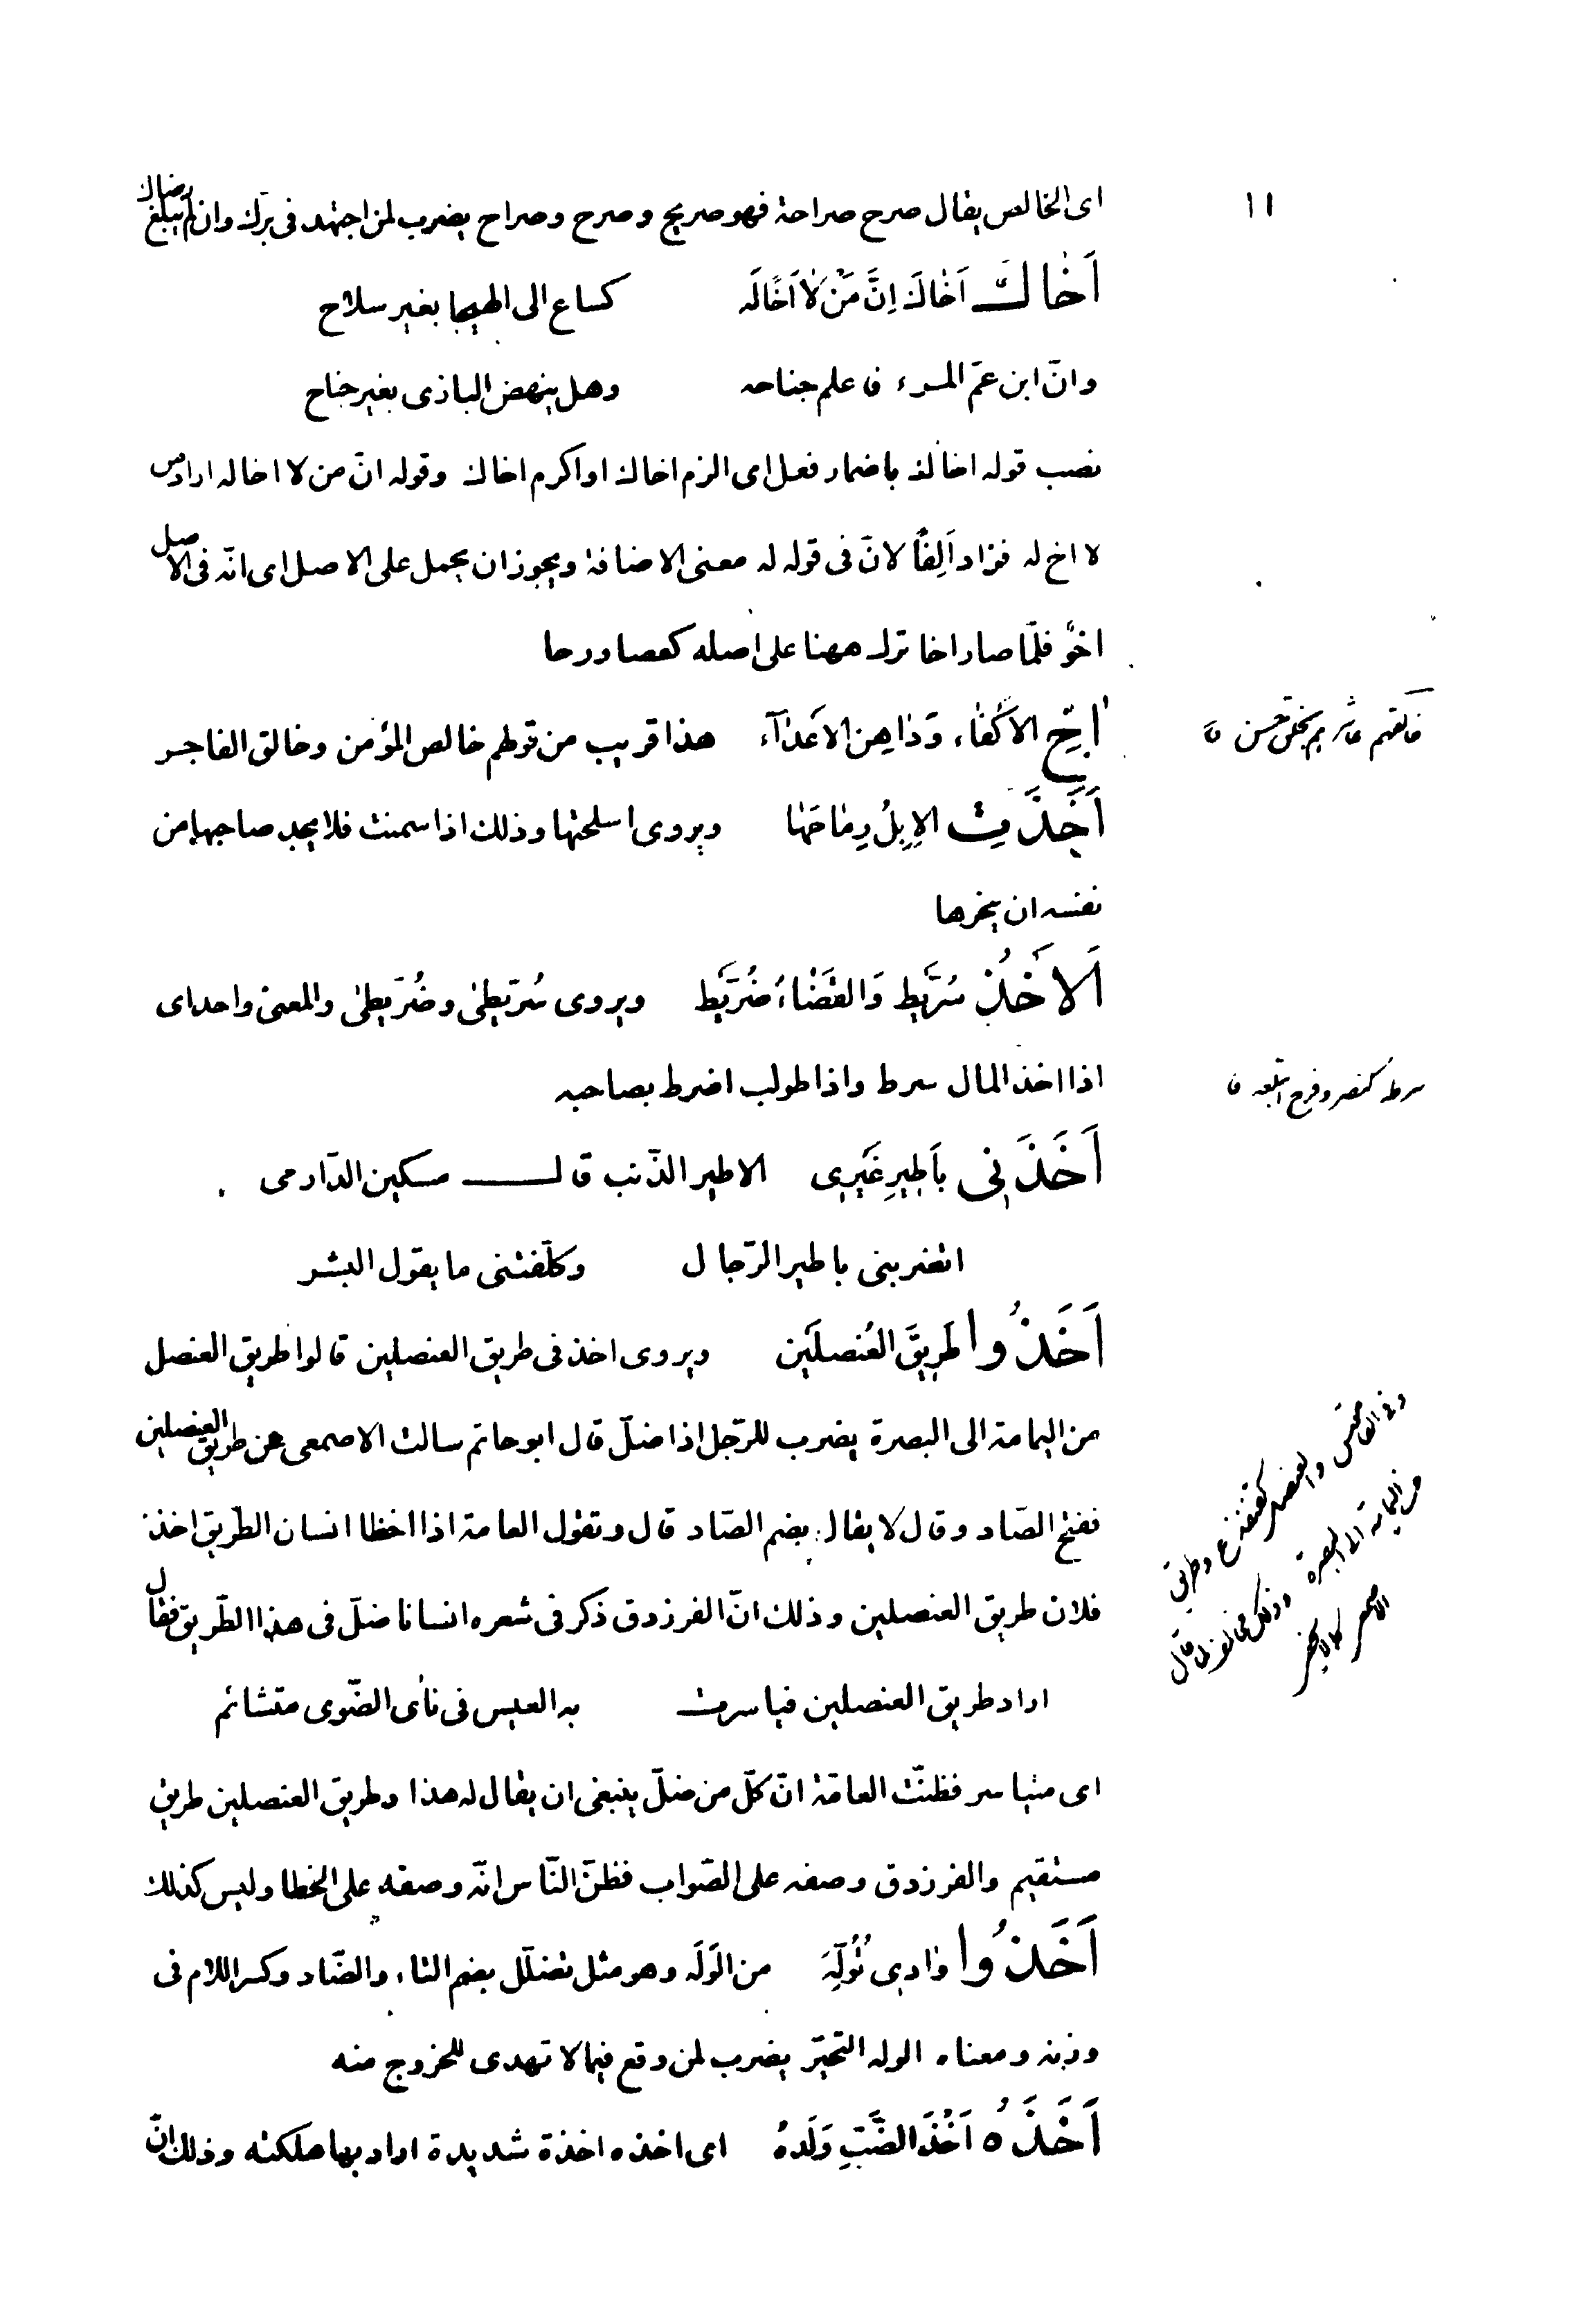 ١١
اى الخالص يقال صرح صراحة فهو صريح و صرح وصراح يضرب لمن اجتهد فى برّك وان لم يبلغ رضاك
اَخٰاكَ اَخٰاكَ اِنَّ مَنْ لاٰ اَخًالَه كساع الى الهيجا بغير سلاح
وانّ ابن عمّ المرء فاعلم جناحه وهل ينهض البازى بغير جناح
نصب قوله اخاك باضمار فعل اى الزم اخاك او اكرم اخاك وقوله انّ من لا اخا له اراد من
لا اخ له فزاد اَلِفًا لانّ فى قوله له معنى الاضافة ويجوز ان يحمل على الاصل اى انّه فى الاصل
اخوٌ فلمّا صار اخا ترك ههنا على اصله كعصا ورحا
الاَكْفٰاء وَدٰاهِن الاَعْدٰآء هذا قريب من قولهم خالص المؤمن وخالق الفاجر
خالقهم عاشرهم بخلق حسن ق
اَخَذَتِ الاِبِلُ رِمٰاحَهٰا ويروى اسلحتها وذلك اذا سمنت فلا يجد صاحبها من
نفسه ان ينحرها
اَلاَخْذُ سُرَّيط وَالقَضٰاءُ ضُرَّيط ويروى سُرّيطىٰ وضُرّيطىٰ والمعنى واحد اى
اذا اخذ المال سرط واذا طولب اضرط بصاحبه
سرطه كنصر وفرح ابتلعه ق
اَخَذَنِى بِاَطِيرِ غَيْرِى الاطير الذّنب قال مسكين الدّارمى
اتضربنى باطير الرّجال وكلّفتنى ما يقول البشر
اَخَذُوا طَرِيقَ العُنصلَين ويروى اخذ فى طريق العنصلين قالوا طريق العنصل
من اليمامة الى البصرة يضرب للرّجل اذا ضلّ قال ابو حاتم سالت الاصمعى عن طريق العنصلين
ففتح الصّاد وقال لا يقال بضم الصّاد قال وتقول العامة اذا اخطا انسان الطّريق اخذ
فلان طريق العنصلين وذلك انّ الفرزدق ذكر فى شعره انسانا ضلّ فى هذا الطّريق فقال
وفى القاموس والعنصل كقنفذ ع وطريق
من اليمامة الى البصرة وذلك مخالف لما قال
الاصمعى كما لا يخفى
اراد طريق العنصلين فياسرت به العيس فى نأى الصّوى متشائم
اى متياسر فظنّت العامّة انّ كلّ من ضلّ ينبغى ان يقال له هذا وطريق العنصلين طريق
مستقيم والفرزدق وصفه على الصّواب فظنّ النّاس انّه وصفه على الخطا وليس كذلك
اَخَذُوا وٰادِى تُوُلِّهَ من الوَلَه وهو مثل تضلّل بضم التاء والضّاد وكسر اللام فى
وزنه ومعناه الوله التحيّر يضرب لمن وقع فيما لا تهدى للخروج منه
اَخَذَهُ اَخْذَ الضَّبِّ وَلَدهُ اى اخذه اخذة شديدة اراد بها هلكته وذلك انّ